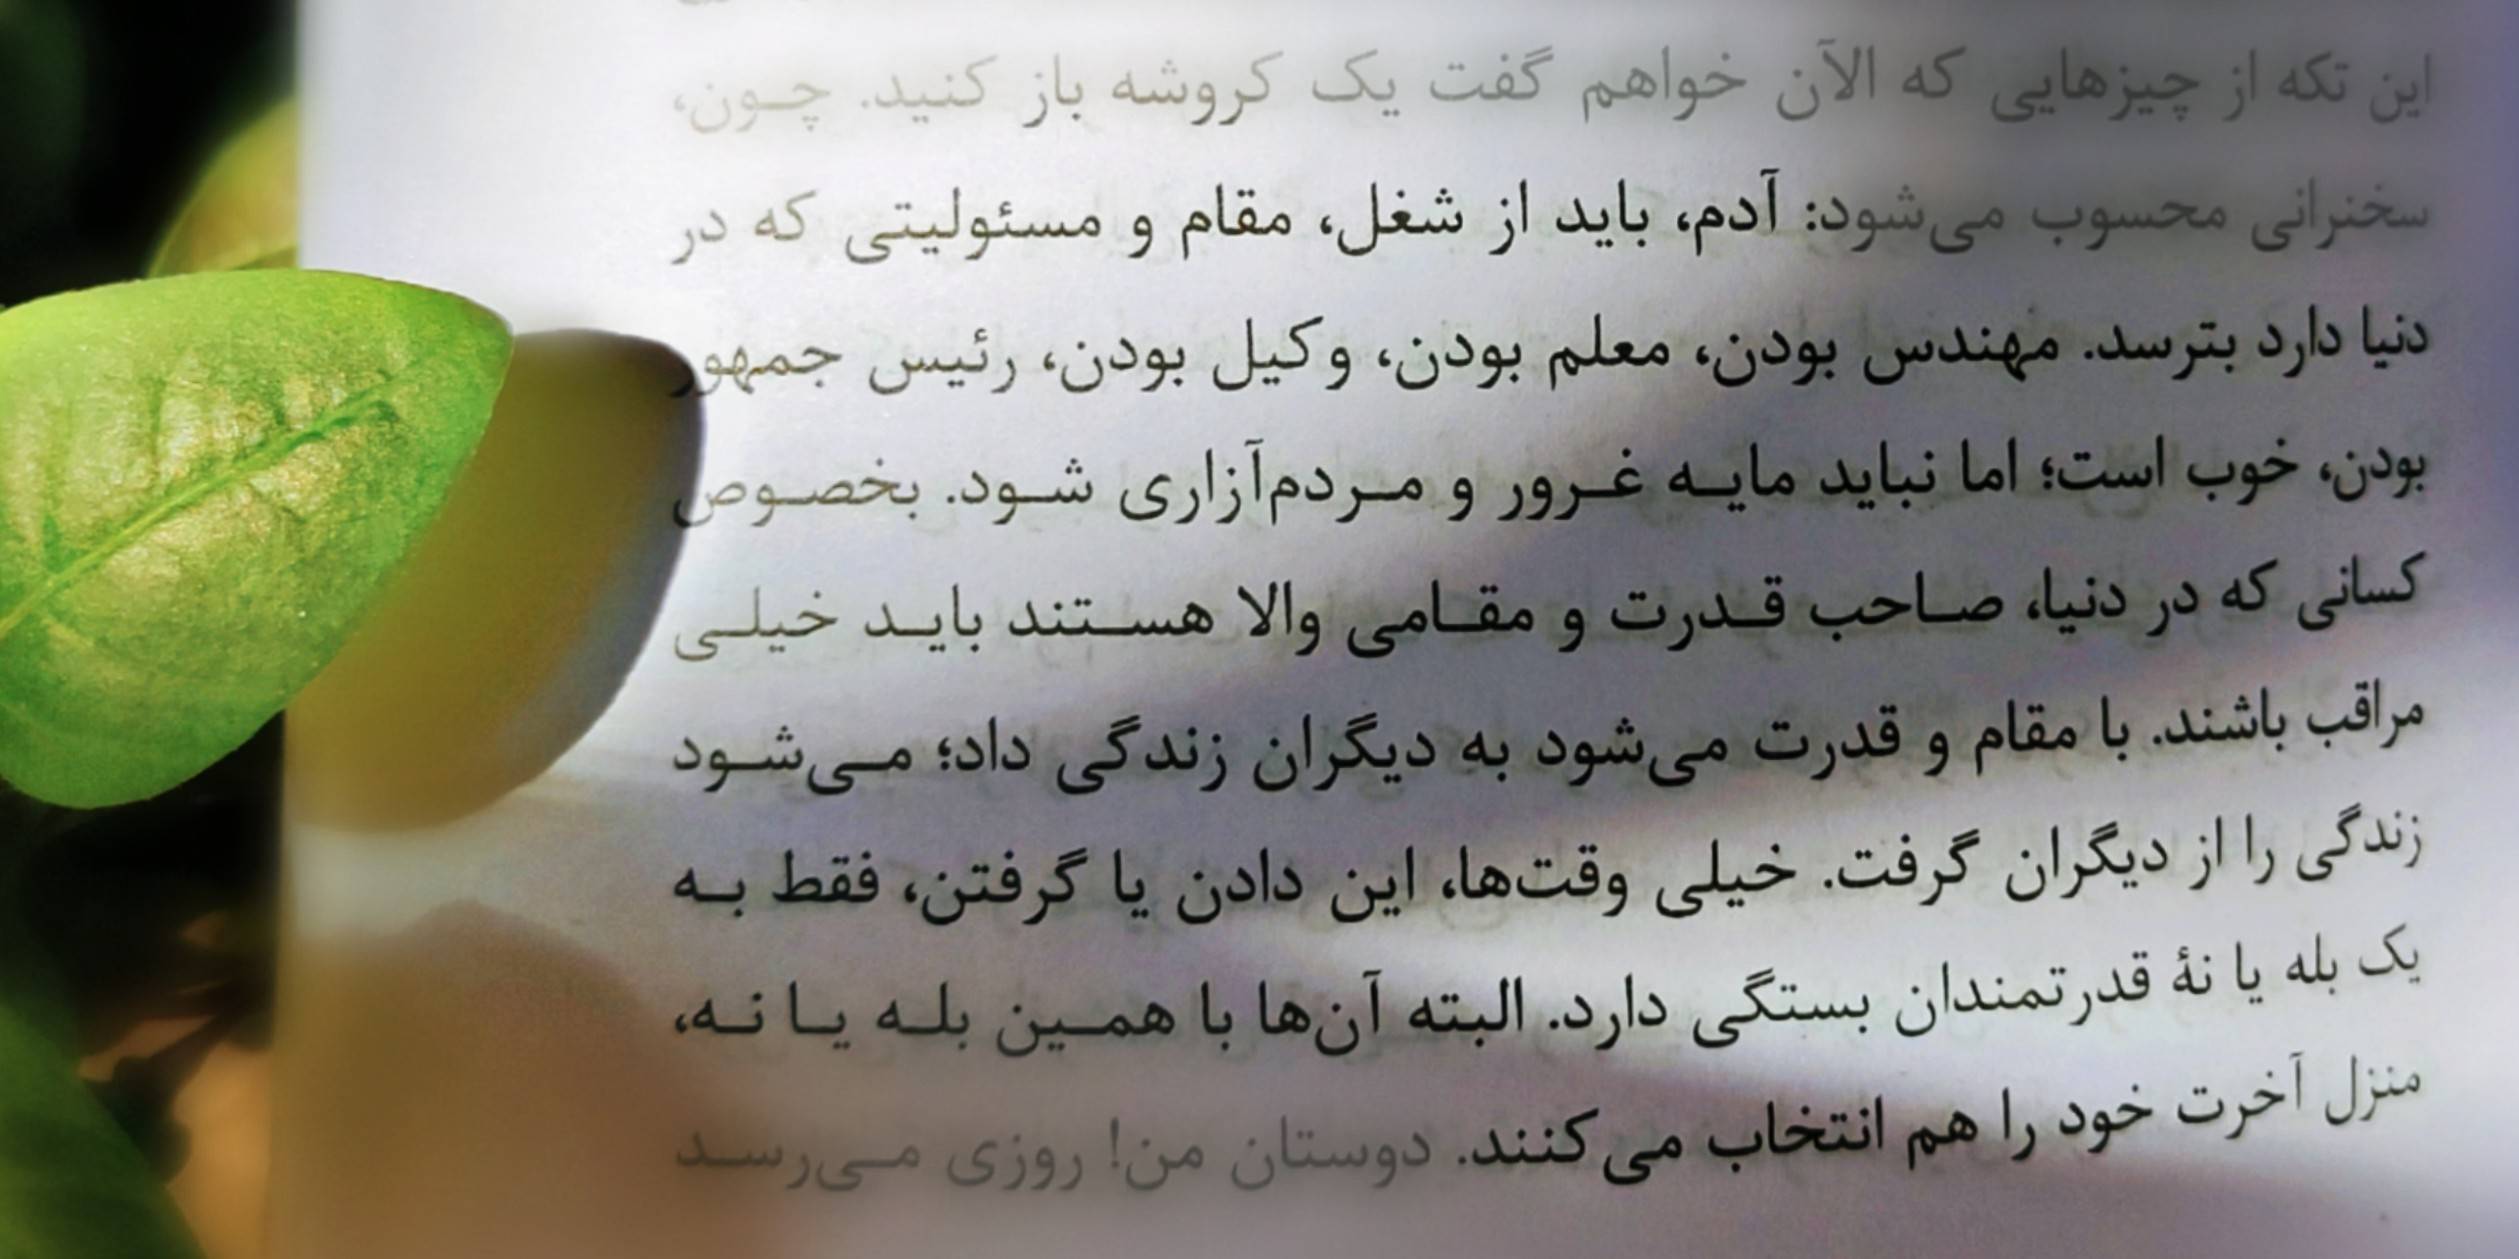 این تکه از چیزهایی که الآن خواهم گفت یک کروشه باز کنید. چون،
سخنرانی محسوب می‌شود: آدم، باید از شغل، مقام و مسئولیتی که در
دنیا دارد بترسد. مهندس بودن، معلم بودن، وکیل بودن، رئیس جمهور
بودن، خوب است؛ اما نباید مایه غرور و مردم‌آزاری شود. بخصوص
کسانی که در دنیا، صاحب قدرت و مقامی والا هستند باید خیلی
مراقب باشند. با مقام و قدرت می‌شود به دیگران زندگی داد؛ می‌شود
زندگی را از دیگران گرفت. خیلی وقت‌ها، این دادن یا گرفتن، فقط به
یک بله یا نهٔ قدرتمندان بستگی دارد. البته آن‌ها با همین بله یا نه،
منزل آخرت خود را هم انتخاب می‌کنند. دوستان من! روزی می‌رسد